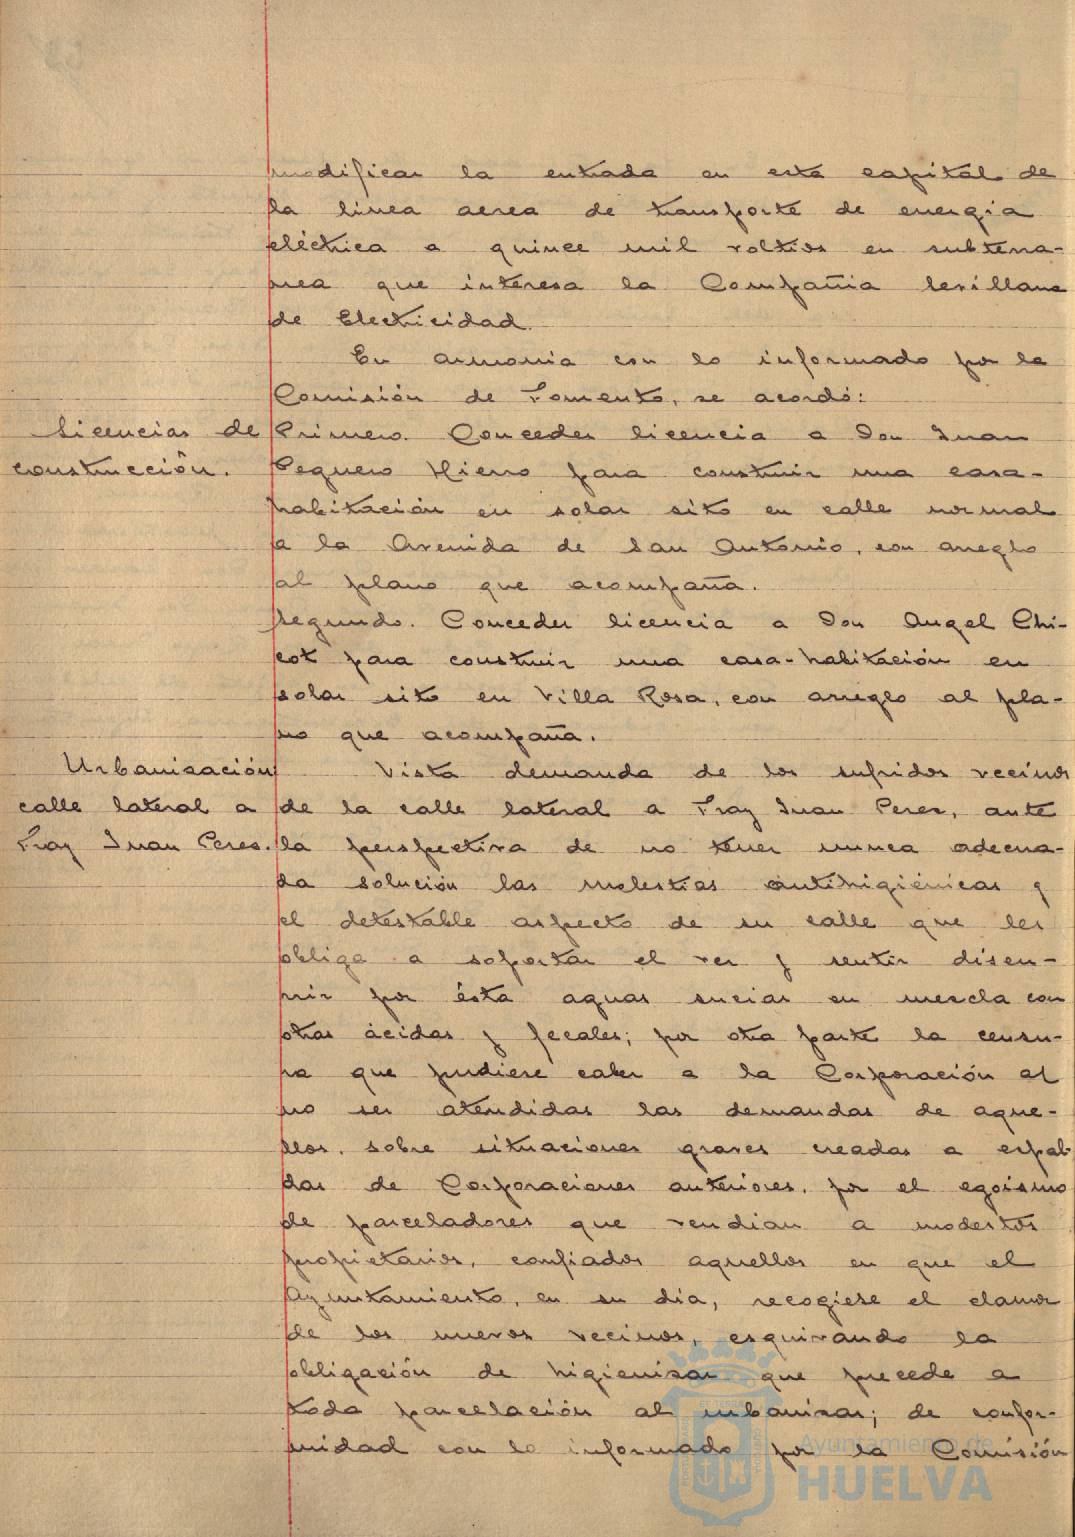 modificar la entrada en esta capital de
la línea aerea de transporte de energía
eléctrica a quince mil voltios en subterra-
nea que interesa la Compañia Sevillana
de Electricidad.
En armonia con lo informado por la
Comisión de Fomento, se acordó:
Licencias de
construcción.
Primero. Conceder licencia a Don Juan
Peguero Hierro para construir una casa-
habitación en solar sito en calle normal
a la Avenida de San Antonio, con arreglo
al plano que acompaña.
Segundo. Conceder licencia a Don Angel Chi-
cot para construir una casa-habitación en
solar sito en Villa Rosa, con arreglo al pla-
no que acompaña.
Urbanización
calle lateral a
Fray Juan Peres.
Vista demanda de los sufridos vecinos
de la calle lateral a Fray Juan Perez, ante
la perspectiva de no tener nunca adecua-
da solución las molestias antihigiénicas y
el detestable aspecto de su calle que les
obliga a soportar el ver y sentir discu-
rrir por ésta aguas sucias en mezcla con
otras ácidas y fecales; por otra parte la censu-
ra que pudiere caber a la Corporación al
no ser atendidas las demandas de aque-
llos, sobre situaciones graves creadas a espal-
das de Corporaciones anteriores, por el egoismo
de parceladores que vendian a modestos
propietarios, confiados aquellos en que el
Ayuntamiento, en su día, recogiese el clamor
de los nuevos vecinos, esquivando la
obligación de higienizar que precede a
toda parcelación al urbanizar; de confor-
midad con lo informado por la Comisión
Ayuntamiento de
HUELVA